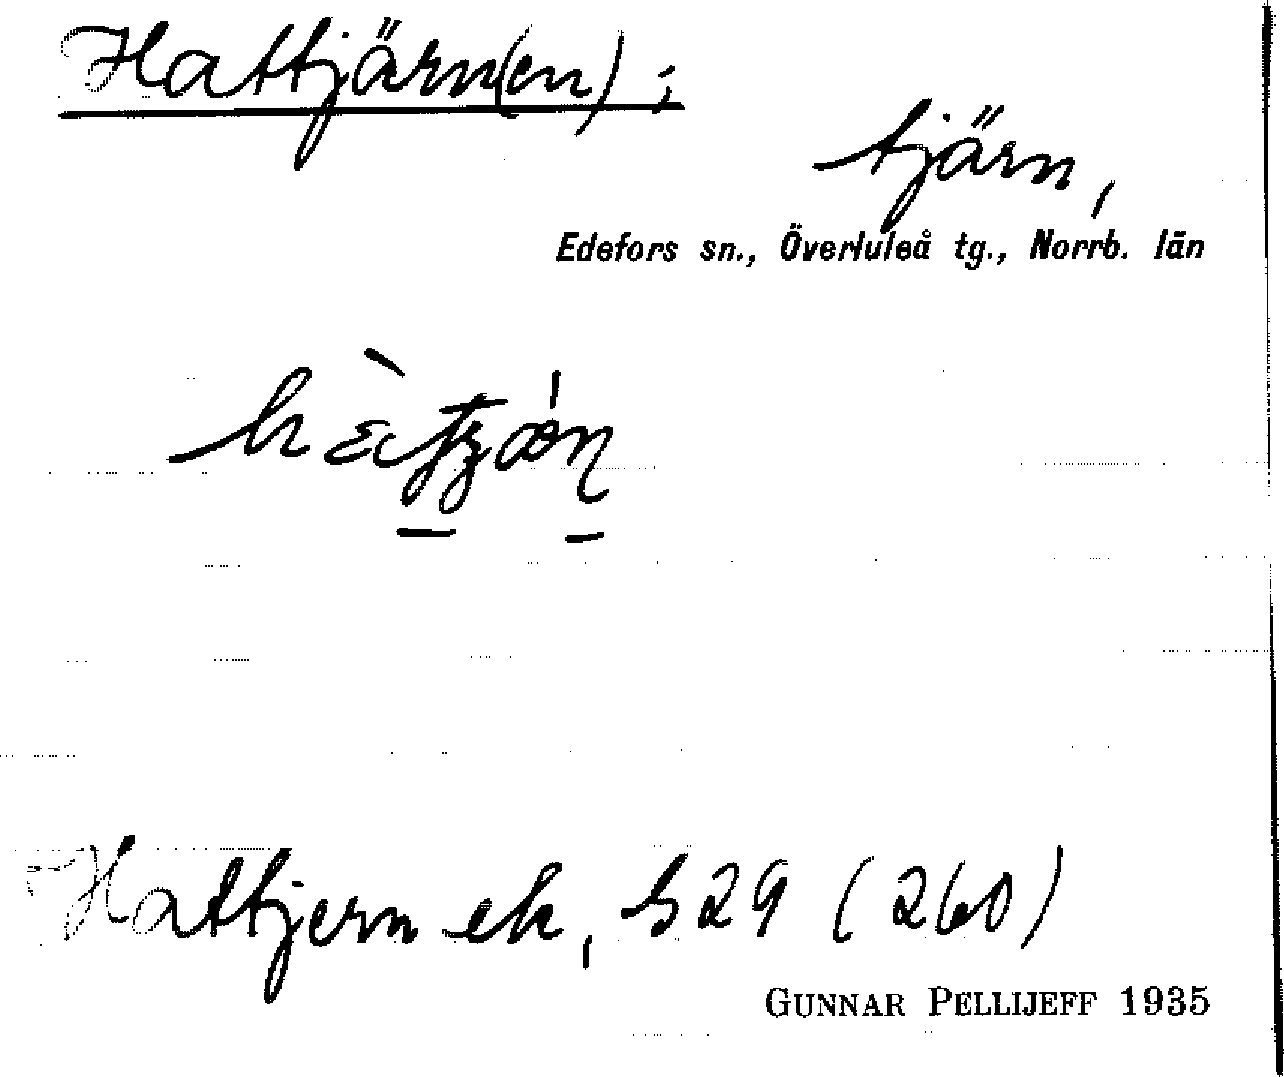 Hattjärn(en);
tjärn,
Edefors sn., Överluleå tg., Norrb. län
Hattjern ek, b29 (260)
GUNNAR PELLIJEFF 1935